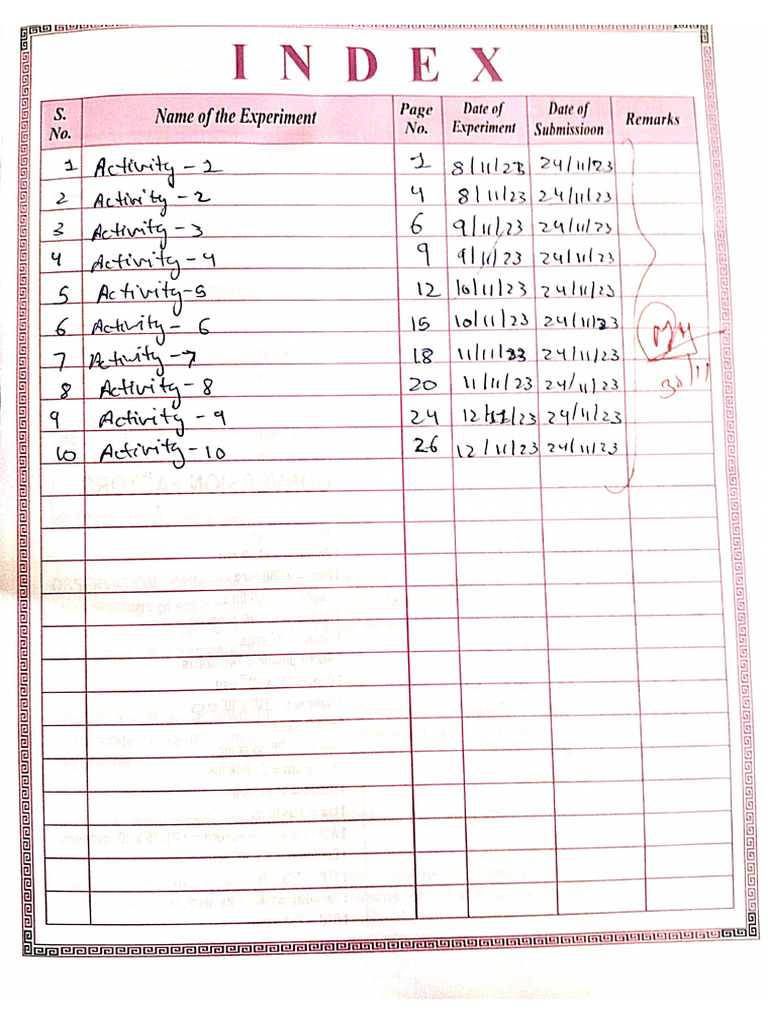 INDEX
S. No. Name of the Experiment Page No. Date of Experiment Date of Submissioon Remarks
1 Activity - 1 1 8/11/23 24/11/23
2 Activity - 2 4 8/11/23 24/11/23
3 Activity - 3 6 9/11/23 24/11/23
4 Activity - 4 9 9/11/23 24/11/23
5 Activity - 5 12 10/11/23 24/11/23
6 Activity - 6 15 10/11/23 24/11/23
7 Activity - 7 18 11/11/23 24/11/23
8 Activity - 8 20 11/11/23 24/11/23
9 Activity - 9 24 12/11/23 24/11/23
10 Activity - 10 26 12/11/23 24/11/23
30/11